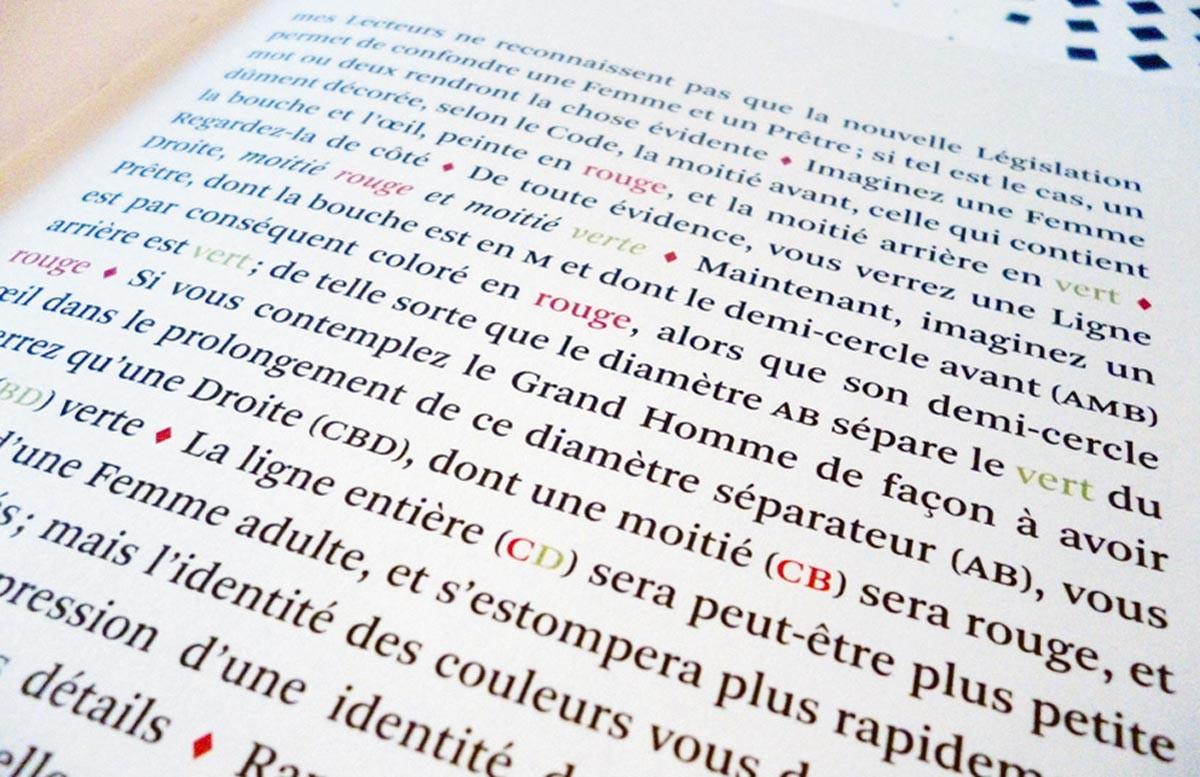 mes Lecteurs ne reconnaissent pas que la nouvelle Législation
permet de confondre une Femme et un Prêtre ; si tel est le cas, un
mot ou deux rendront la chose évidente ♦ Imaginez une Femme
dûment décorée, selon le Code, la moitié avant, celle qui contient
la bouche et l’œil, peinte en rouge, et la moitié arrière en vert ♦
Regardez-la de côté ♦ De toute évidence, vous verrez une Ligne
Droite, moitié rouge et moitié verte ♦ Maintenant, imaginez un
Prêtre, dont la bouche est en M et dont le demi-cercle avant (AMB)
est par conséquent coloré en rouge, alors que son demi-cercle
arrière est vert ; de telle sorte que le diamètre AB sépare le vert du
rouge ♦ Si vous contemplez le Grand Homme de façon à avoir
œil dans le prolongement de ce diamètre séparateur (AB), vous
errez qu’une Droite (CBD), dont une moitié (CB) sera rouge, et
(BD) verte ♦ La ligne entière (CD) sera peut-être plus petite
d’une Femme adulte, et s’estompera plus rapidem
s ; mais l’identité des couleurs vous d
pression d’une identité d
détails ♦ Ra
elle